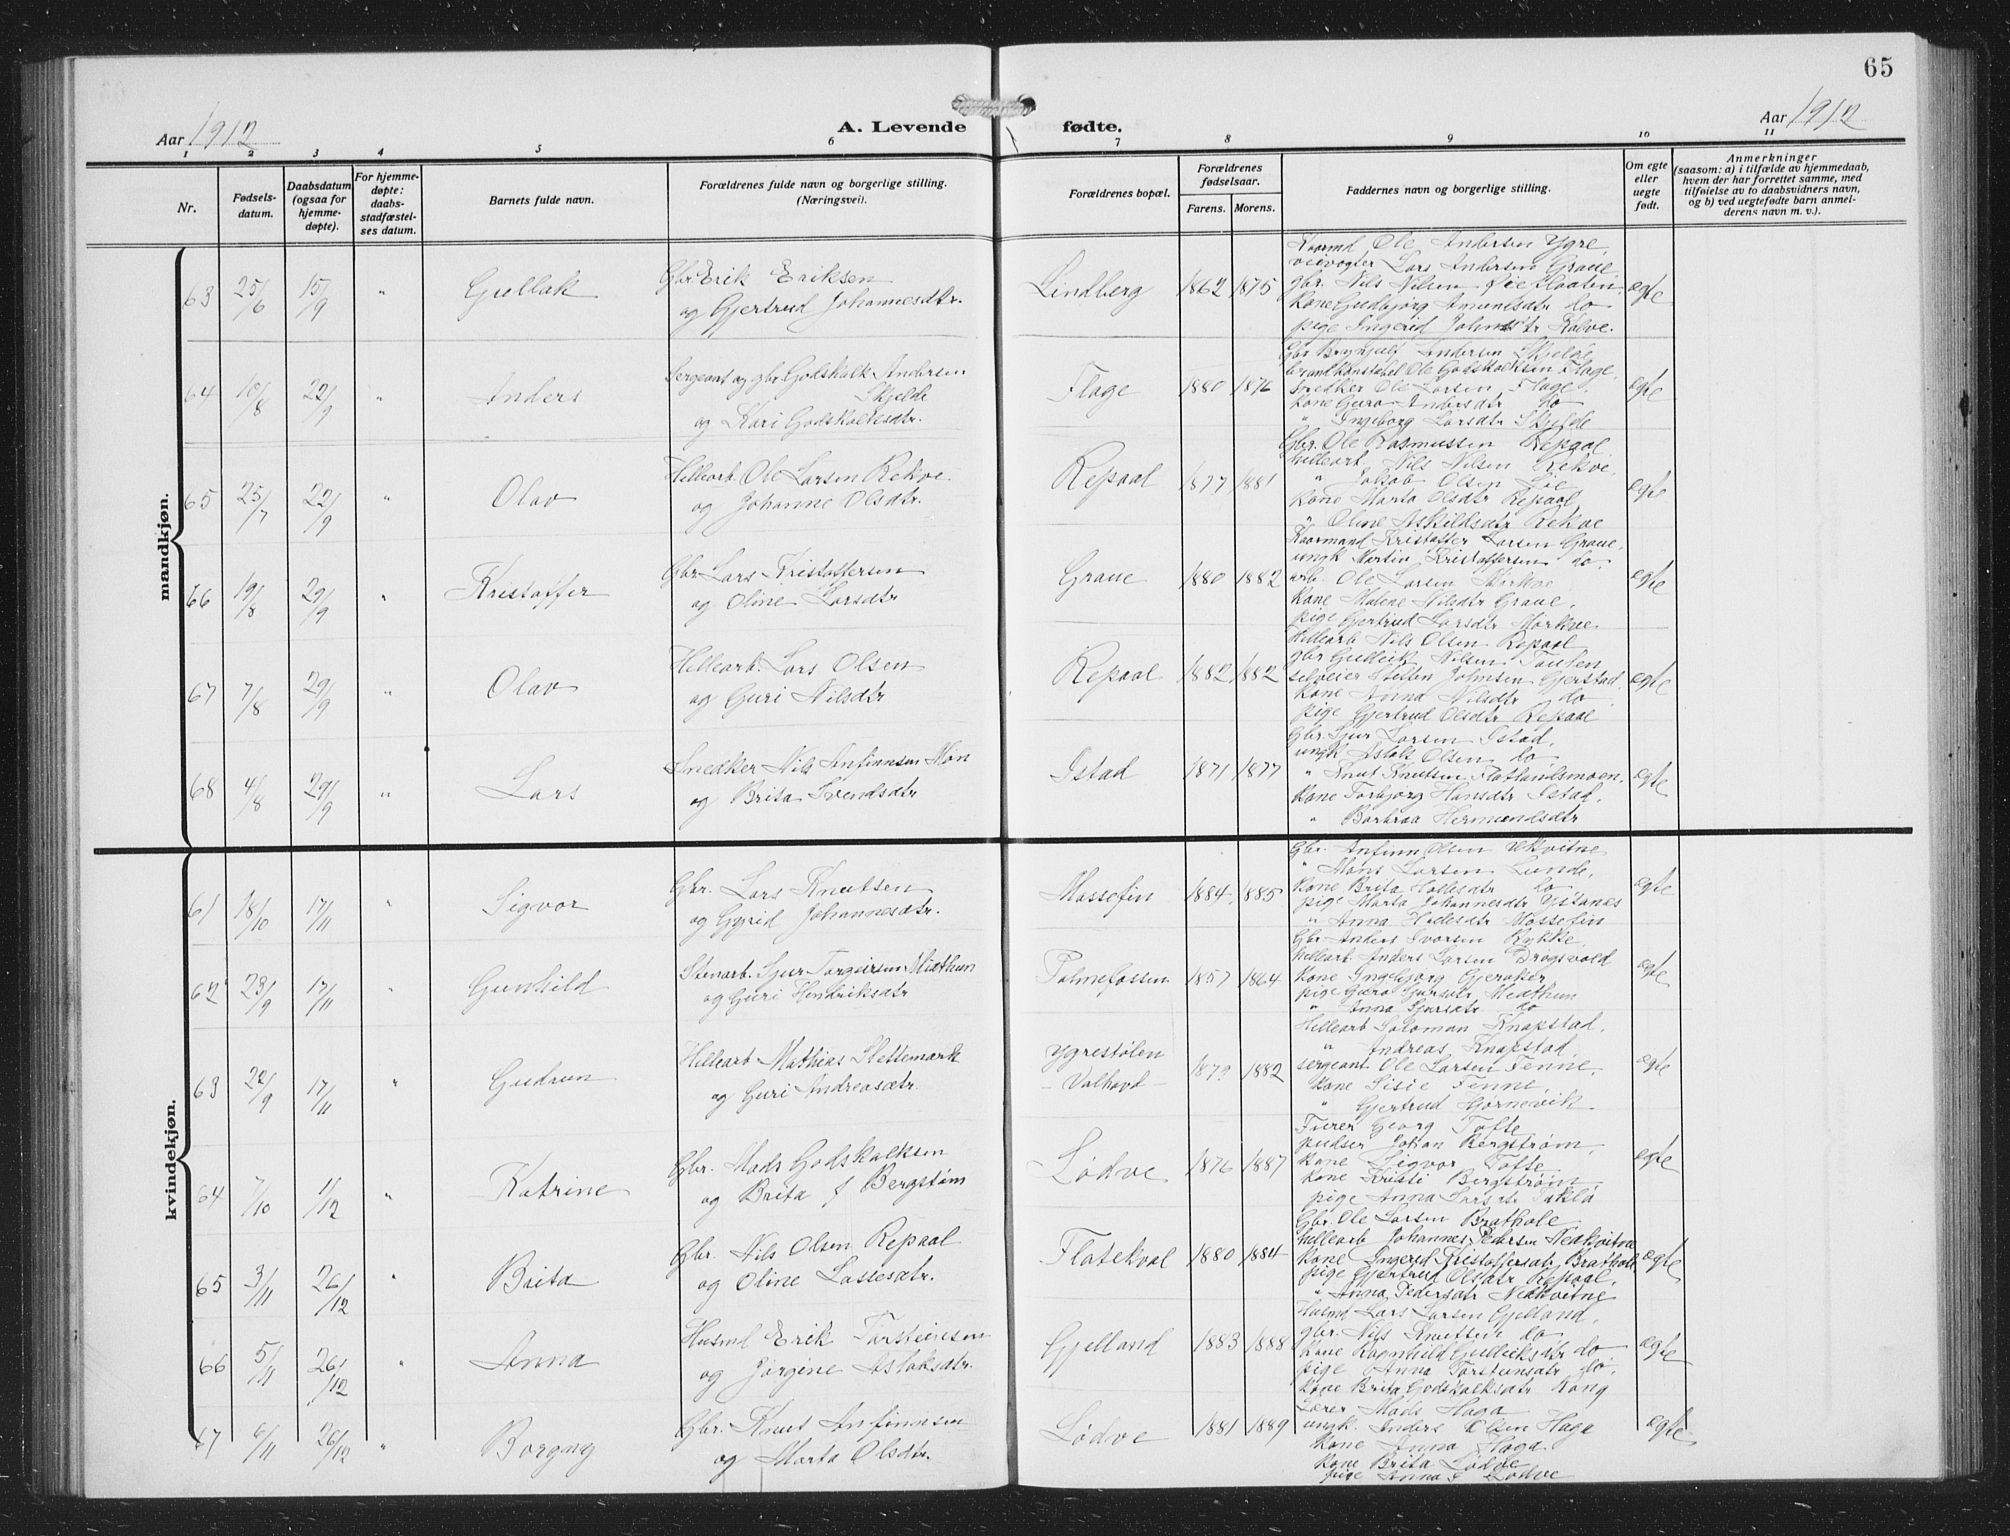 65
Aar 1912
A. Levende fødte.
Aar 1912
1 2 3 4 5 6 7 8 9 10 11
Nr.
Fødsels-
datum.
Daabsdatum
(ogsaa for
hjemme-
døpte).
For hjemme-
døpte:
daabs-
stadfæstel-
ses datum.
Barnets fulde navn.
Forældrenes fulde navn og borgerlige stilling.
(Næringsvei).
Forældrenes bopæl.
Forældrenes
fødselsaar.
Farens. Morens.
Faddernes navn og borgerlige stilling.
Om egte
eller
uegte
født.
Anmerkninger
(saasom: a) i tilfælde av hjemmedaab,
hvem der har forrettet samme, med
tilføielse av to daabsvidners navn,
og b) ved uegtefødte barn anmel-
derens navn m. v.).
mandkjøn.
63 25/6 15/9 " Gullak
Gbr. Erik Eriksen
og Gjertrud Johannesdtr.
Lindberg 1862 1875
Kaarmd Ole Andersen Ygre,
veivogter Lars Andersen Graue
gbr. Nils Nilsen
kone Gudbjørg do
pige Ingerid Kolve.
egte
64 10/8 22/9 " Anders
Sergeant og gbr Godskalk Andersen
Skjelde
og Kari Godskalksdtr.
Flage 1880 1876
Gbr Brynjulf Andersen Skjelde
Ole Godskalksen Flage,
snedker Ole Larsen Flage,
kone Guro Andersdtr do
" Ingeborg Larsdtr Skjelde
egte
65 25/7 22/9 " Olav
Hellearb. Ole Larsen Rekve
og Johanne Olsdtr.
Repaal 1877 1881
Gbr. Ole Rasmussen Repaal
hellearb. Nils Nilsen Rekve,
" Jakob Olsen
kone Marta Olsdtr Repaal
" Oline Askildsdtr Rekve
egte
66 19/8 29/9 " Kristoffer
Gbr. Lars Kristoffersen
og Oline Larsdtr
Graue 1880 1882
Kaarmand Kristoffer Larsen Graue,
ungk Martin Kristoffersen do,
arb. Ole Larsen Mørkve
kone Malene Nilsdtr Graue,
pige Gjertrud Larsdtr Mørkve
egte
67 7/8 29/9 " Olav
Hellearb. Lars Olsen
og Guri Nilsdtr
Repaal 1882 1882
Hellearb Nils Olsen Repaal
gbr Gudleik Nilsen
selveier Johnsen Gjerstad,
kone Anna Nilsdtr do
pige Gjertrud Olsdtr Repaal
egte
68 4/8 29/9 " Lars
Snedker Nils Anfinnsen Møn
og Brita Svendsdtr
Istad 1871 1877
Gbr. Sjur Larsen Istad,
ungk. Olsen do
" Knut Knutsen Flatlandsmoen,
kone Torbjørg Hansdtr Istad,
" Barbraa Hermundsdtr
egte
kvindekjøn.
61 18/10 17/11 " Sigvor
Gbr. Lars Knutsen
og Gyrid Johannesdtr.
Mossefin 1884 1885
Gbr. Anfinn Olsen
" Møns Larsen Lunde,
kone Brita do,
pige Marta Johannesdtr
" Anna Mossefin
egte
62 23/9 17/11 Gunhild
Stenarb. Sjur Torgeirsen Midthun
og Guri Hendriksdtr
Palmefossen 1857 1864
Gbr Anders Ivarsen Rykke,
hellearb. Anders Larsen
kone Ingebjørg Gjeraker,
pige Guro Sjursdtr Midthun
" Anna Sjursdtr do
egte
63 22/9 17/11 " Gudrun
Hellearb. Mathias Slettemark
og Guri Andreasdtr.
Ygrestølen
- Valhavd - 1882
Hellearb Salomon Knapstad,
" Andreas Knapstad,
sergeant Ole Larsen Tenne,
kone Sisie Tenne,
" Gjertrud Hjørnevik
egte
64 7/10 1/12 " Katrine
Gbr. Mads Godskalksen
og Brita f Bergstøm
Lødve 1876 1887
Furer Georg Tofte
pudser Johan Bergstrøm,
kone Sigvor Tofte
kone Kristi Bergstrøm
pige Anna Larsdtr
egte
65 3/11 26/12 " Brita
Gbr. Nils Olsen Repaal
og Oline Lassesdtr.
Flatekval 1880 1884
Gbr. Ole Larsen Brathole
hellearb Johannes Pedersen Nedkvitne
kone Ingerid Kristoffersdtr Brathole
pige Gjertrud Olsdtr Repaal,
" Anna Pedersdtr Nedkvitne
egte
66 5/11 26/12 " Anna
Husmd Erik Torsteinsen
og Jørgine Aslaksdtr.
Gjelland 1883 1888
Husmd Lars Larsen Gjelland,
gbr. Nils Knutsen do
kone Ragnhild Gudleiksdtr do
pige Anna Torsteinsdtr do,
kone Brita Godskalksdtr
egte
67 6/11 26/12 " Borgny
Gbr. Knut Anfinnsen
og Marta Olsdtr.
Lødve 1881 1889
Lærer Mads Haga
ungk. Anders Olsen Haga
kone Anna Haga
kone Brita Lødve
pige Anna Lødve
egte